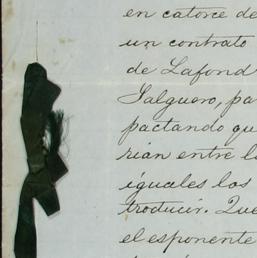 en catorce de
un contrato
de Lafond
Salguero, pa
pactando qu
rian entre lo
iguales los
troducir. Que
el esponente